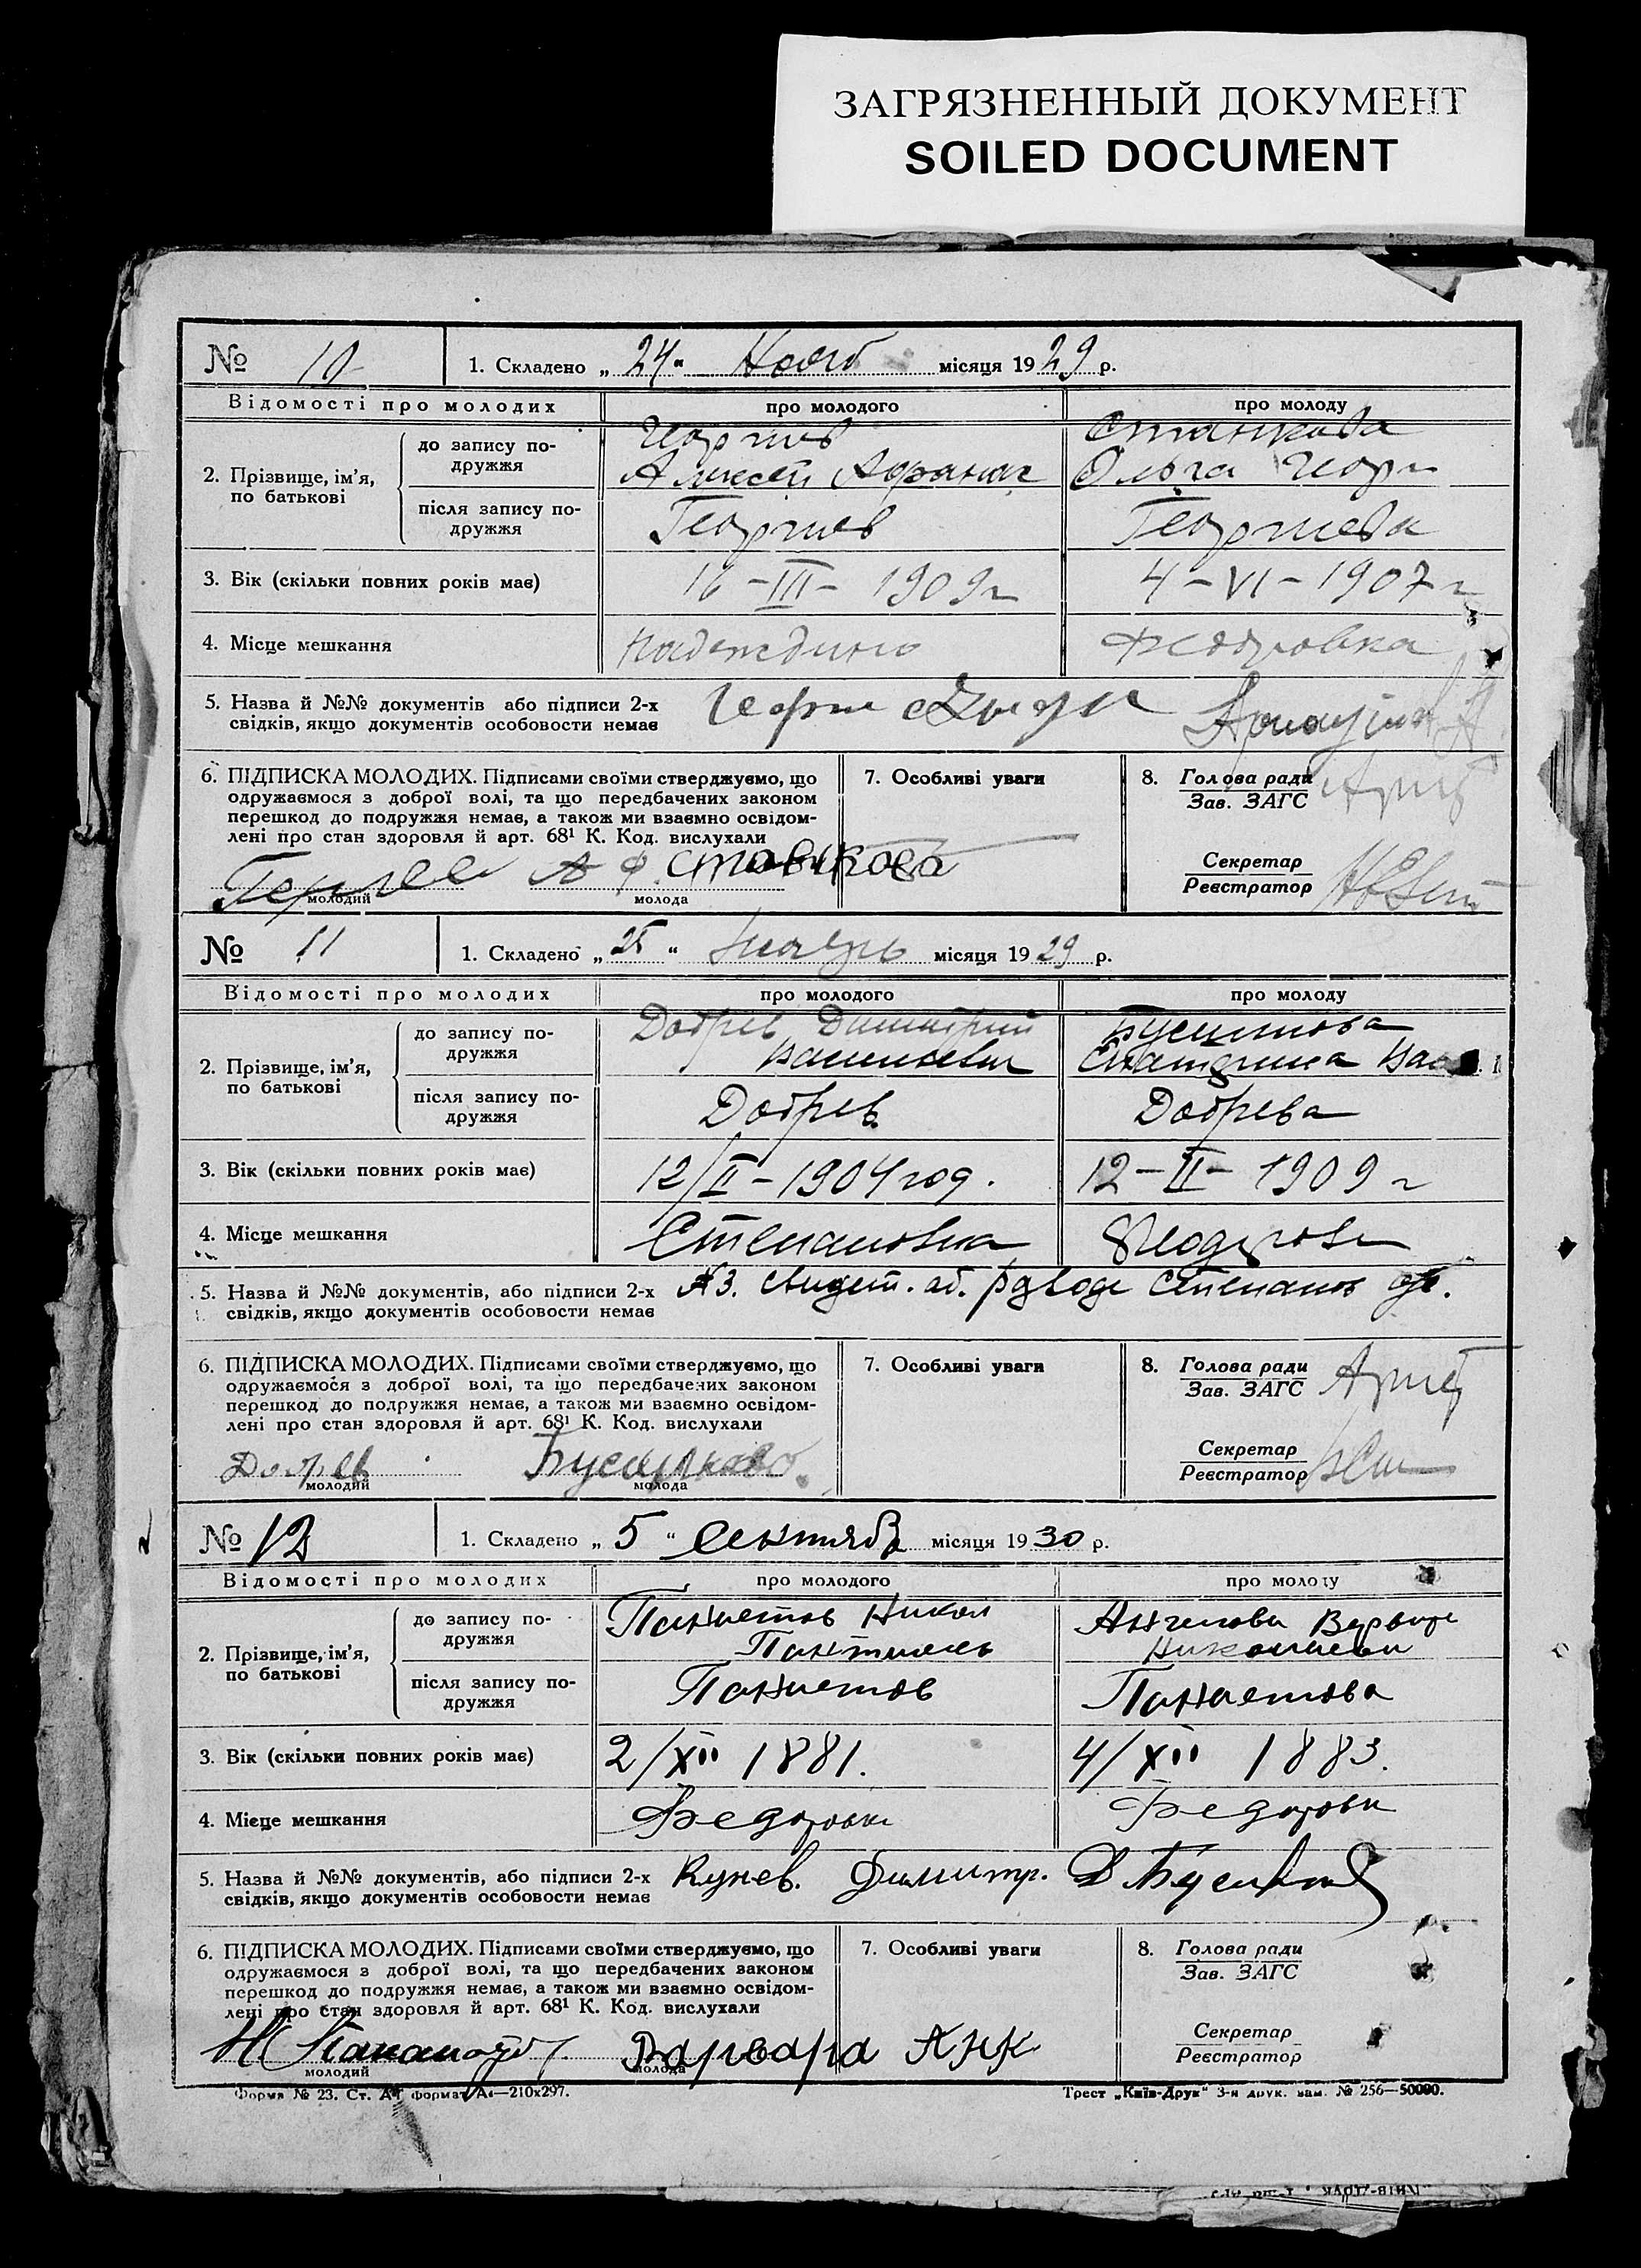 ЗАГРЯЗНЕННЫЙ ДОКУМЕНТ
SOILED DOCUMENT
№ 10 1. Складено „24“ Нояб місяця 1929 р.
Відомості про молодих про молодого про молоду
2. Прізвище, ім'я, по батькові
до запису подружжя Георгиев Станкова
Алексей Афанас Ольга Георг
після запису подружжя Георгиев Георгиева
3. Вік (скільки повних років має) 16–III–1909 г 4–VI–1907 г
4. Місце мешкання Надеждино Федоровка
5. Назва й №№ документів або підписи 2-х
свідків, якщо документів особовости немає
6. ПІДПИСКА МОЛОДИХ. Підписами своїми стверджуємо, що
одружаємося з доброї волі, та що передбачених законом
перешкод до подружжя немає, а також ми взаємно освідом-
лені про стан здоровля й арт. 68¹ К. Код. вислухали
А Ф. Станкова
молодий молода
7. Особливі уваги
8. Голова ради
Зав. ЗАГС
Секретар
Реєстратор
№ 11 1. Складено „25“ місяця 1929 р.
Відомості про молодих про молодого про молоду
2. Прізвище, ім'я, по батькові
до запису подружжя Добрев Димитрий
Васильевич Екатерина
після запису подружжя Добрев Добрева
3. Вік (скільки повних років має) 12/II–1904 год. 12–II–1909 г
4. Місце мешкання Степановка
5. Назва й №№ документів, або підписи 2-х
свідків, якщо документів особовости немає
№3. Свидет. об. разводе Степанов
6. ПІДПИСКА МОЛОДИХ. Підписами своїми стверджуємо, що
одружаємося з доброї волі, та що передбачених законом
перешкод до подружжя немає, а також ми взаємно освідом-
лені про стан здоровля й арт. 68¹ К. Код. вислухали
Добрев
молодий молода
7. Особливі уваги
8. Голова ради
Зав. ЗАГС
Секретар
Реєстратор
№ 12 1. Складено „5“ Сентяб місяця 1930 р.
Відомості про молодих про молодого про молоду
2. Прізвище, ім'я, по батькові
до запису подружжя Панаетов Никол Ангелова
Николаева
після запису подружжя Панаетов Панаетова
3. Вік (скільки повних років має) 2/XII 1881. 4/XII 1883.
4. Місце мешкання Федоровка Федоровка
5. Назва й №№ документів, або підписи 2-х
свідків, якщо документів особовости немає
Кунев. Димитр.
6. ПІДПИСКА МОЛОДИХ. Підписами своїми стверджуємо, що
одружаємося з доброї волі, та що передбачених законом
перешкод до подружжя немає, а також ми взаємно освідом-
лені про стан здоровля й арт. 68¹ К. Код. вислухали
Варвара
молодий молода
7. Особливі уваги
8. Голова ради
Зав. ЗАГС
Секретар
Реєстратор
Форма № 23. Ст. Аі формат А₄—210х297.
Трест „Київ-Друк“ 3-я друк. зам. № 256—50000.